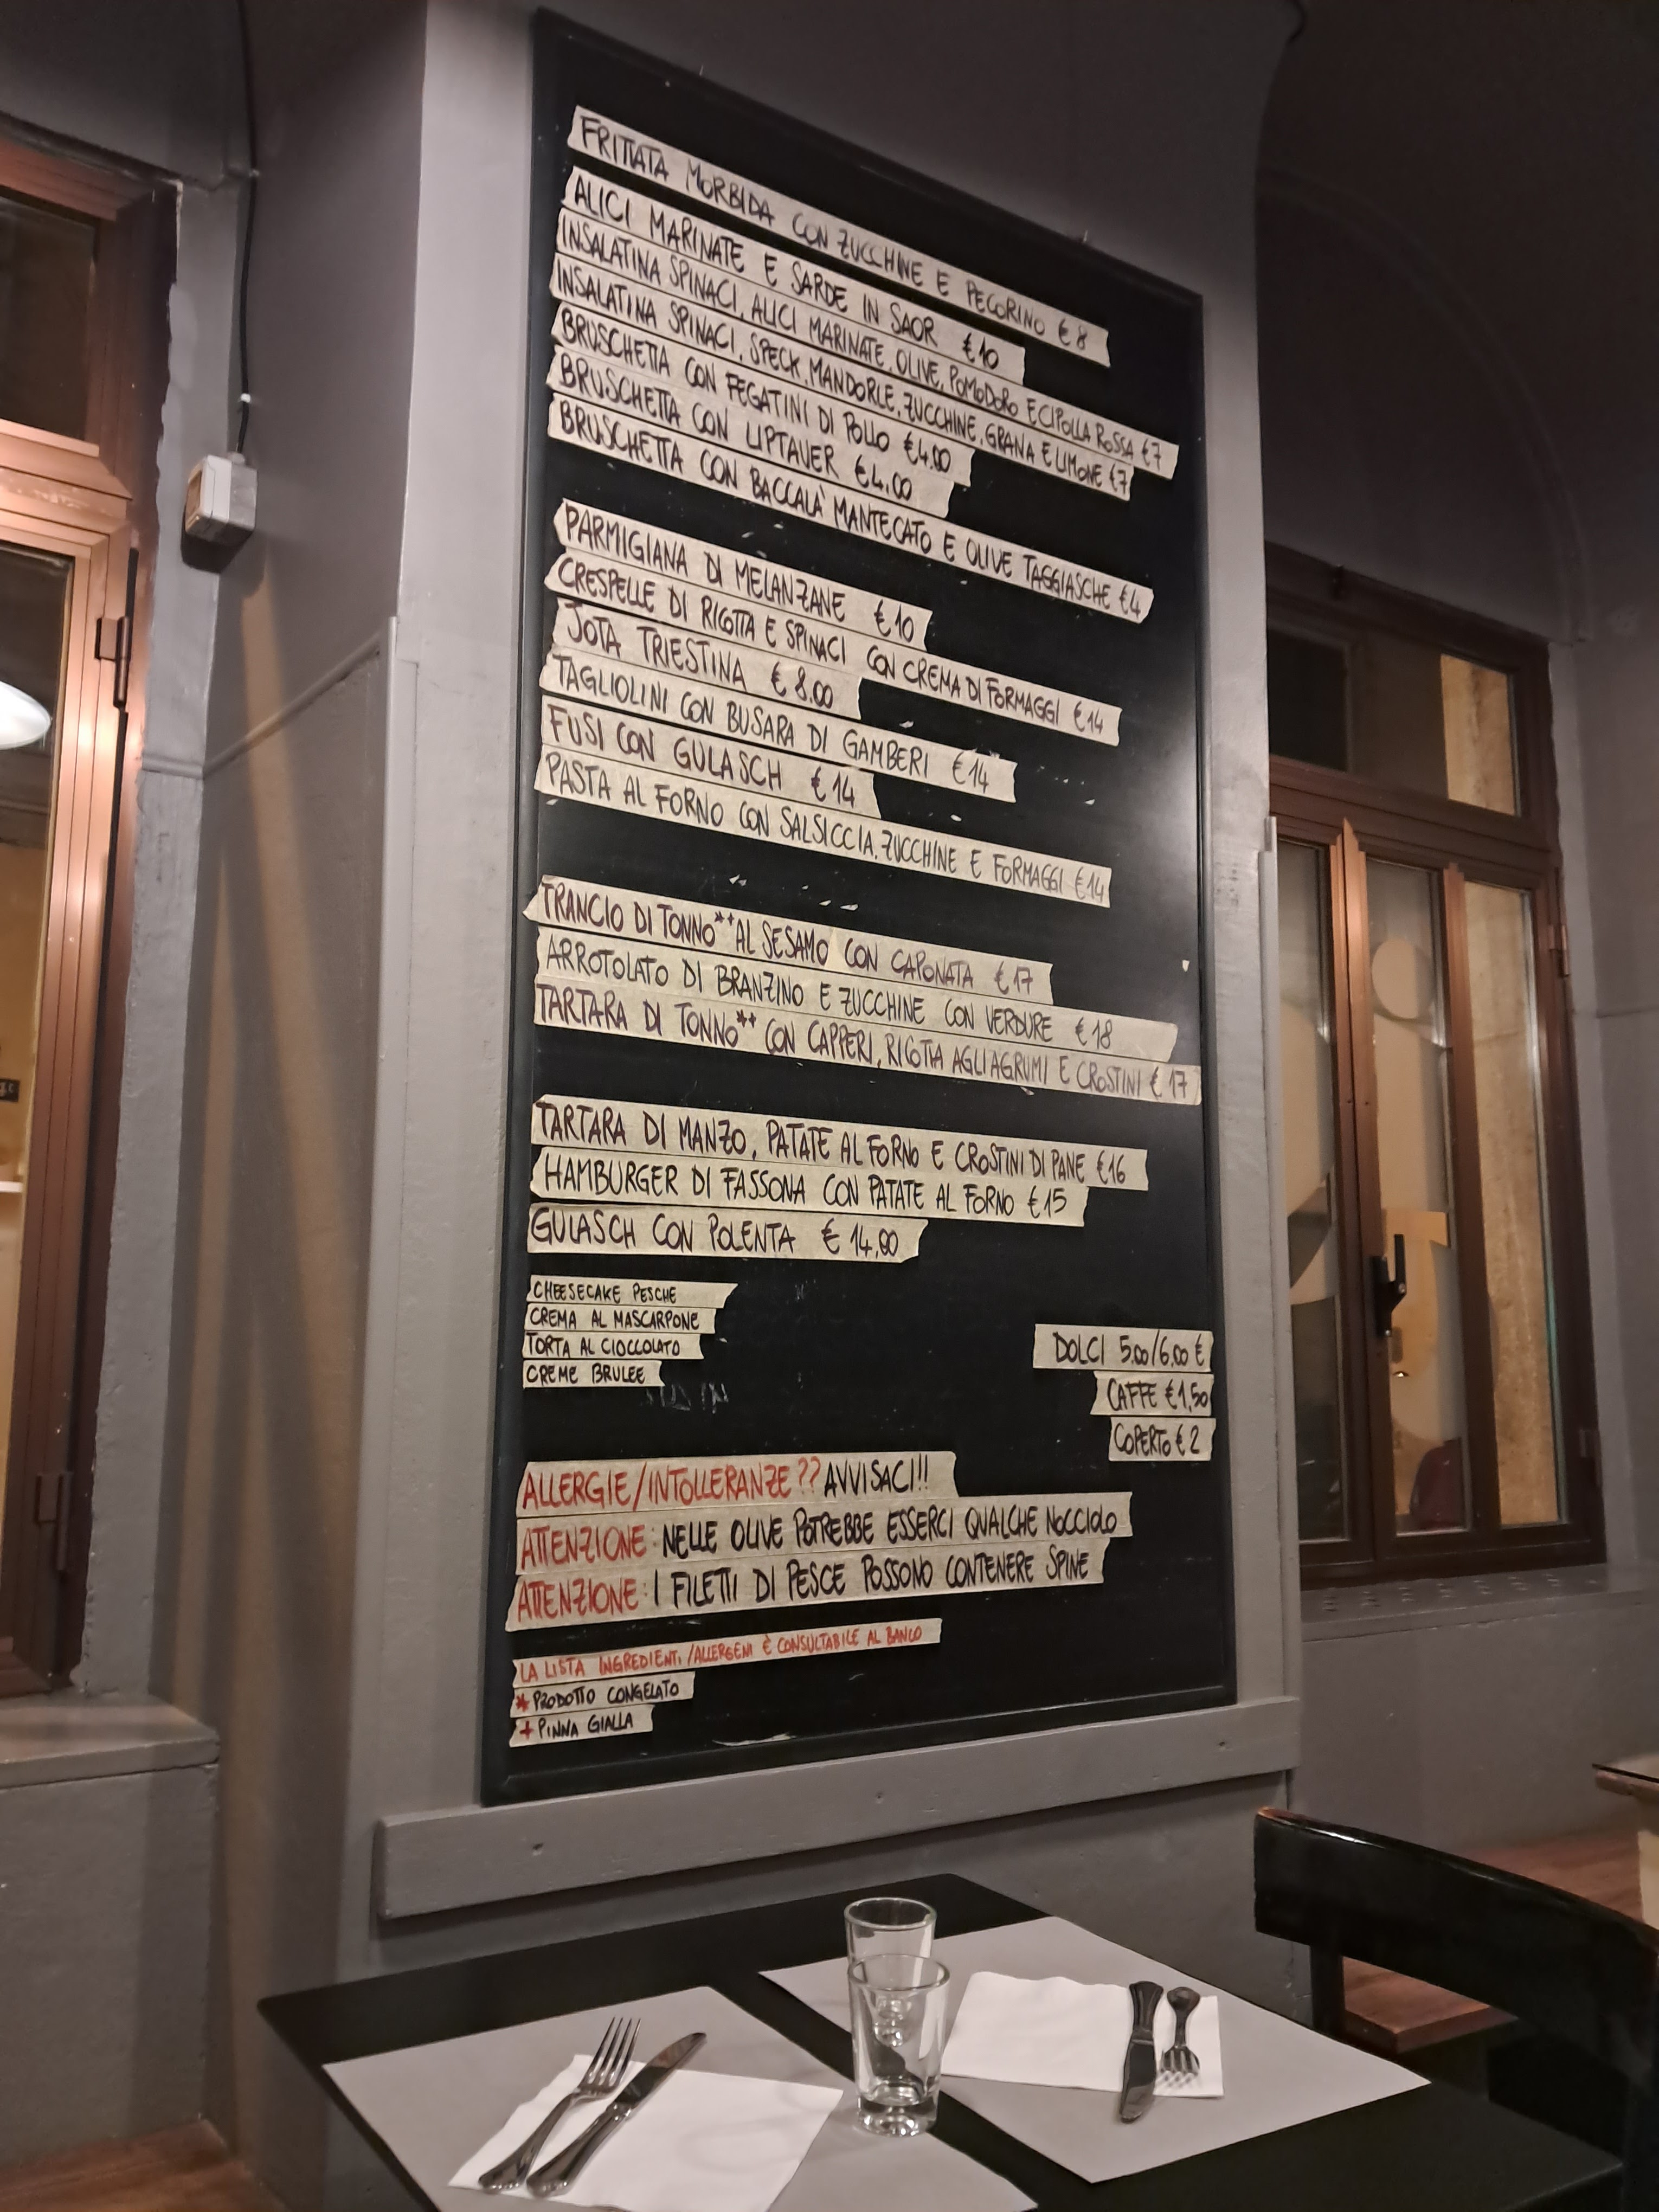 FRITTATA MORBIDA CON ZUCCHINE E PECORINO € 8
ALICI MARINATE E SARDE IN SAOR €10
INSALATINA SPINACI, ALICI MARINATE, OLIVE, POMODORO E CIPOLLA ROSSA €7
INSALATINA SPINACI, SPECK, MANDORLE, ZUCCHINE, GRANA E LIMONE €7
BRUSCHETTA CON FEGATINI DI POLLO €4.00
BRUSCHETTA CON LIPTAUER €4.00
BRUSCHETTA CON BACCALÀ MANTECATO E OLIVE TAGGIASCHE €4
PARMIGIANA DI MELANZANE €10
CRESPELLE DI RICOTTA E SPINACI CON CREMA DI FORMAGGI €14
JOTA TRIESTINA € 8.00
TAGLIOLINI CON BUSARA DI GAMBERI €14
FUSI CON GULASCH €14
PASTA AL FORNO CON SALSICCIA, ZUCCHINE E FORMAGGI €14
TRANCIO DI TONNO*+ AL SESAMO CON CAPONATA €17
ARROTOLATO DI BRANZINO E ZUCCHINE CON VERDURE €18
TARTARA DI TONNO*+ CON CAPPERI, RICOTTA AGLI AGRUMI E CROSTINI €17
TARTARA DI MANZO, PATATE AL FORNO E CROSTINI DI PANE €16
HAMBURGER DI FASSONA CON PATATE AL FORNO €15
GULASCH CON POLENTA € 14,00
CHEESECAKE PESCHE
CREMA AL MASCARPONE
TORTA AL CIOCCOLATO
CREME BRULEE
DOLCI 5.00/6.00 €
CAFFE €1,50
COPERTO € 2
ALLERGIE/INTOLLERANZE?? AVVISACI!!
ATTENZIONE: NELLE OLIVE POTREBBE ESSERCI QUALCHE NOCCIOLO
ATTENZIONE: I FILETTI DI PESCE POSSONO CONTENERE SPINE
LA LISTA INGREDIENTI/ALLERGENI È CONSULTABILE AL BANCO
* PRODOTTO CONGELATO
+ PINNA GIALLA